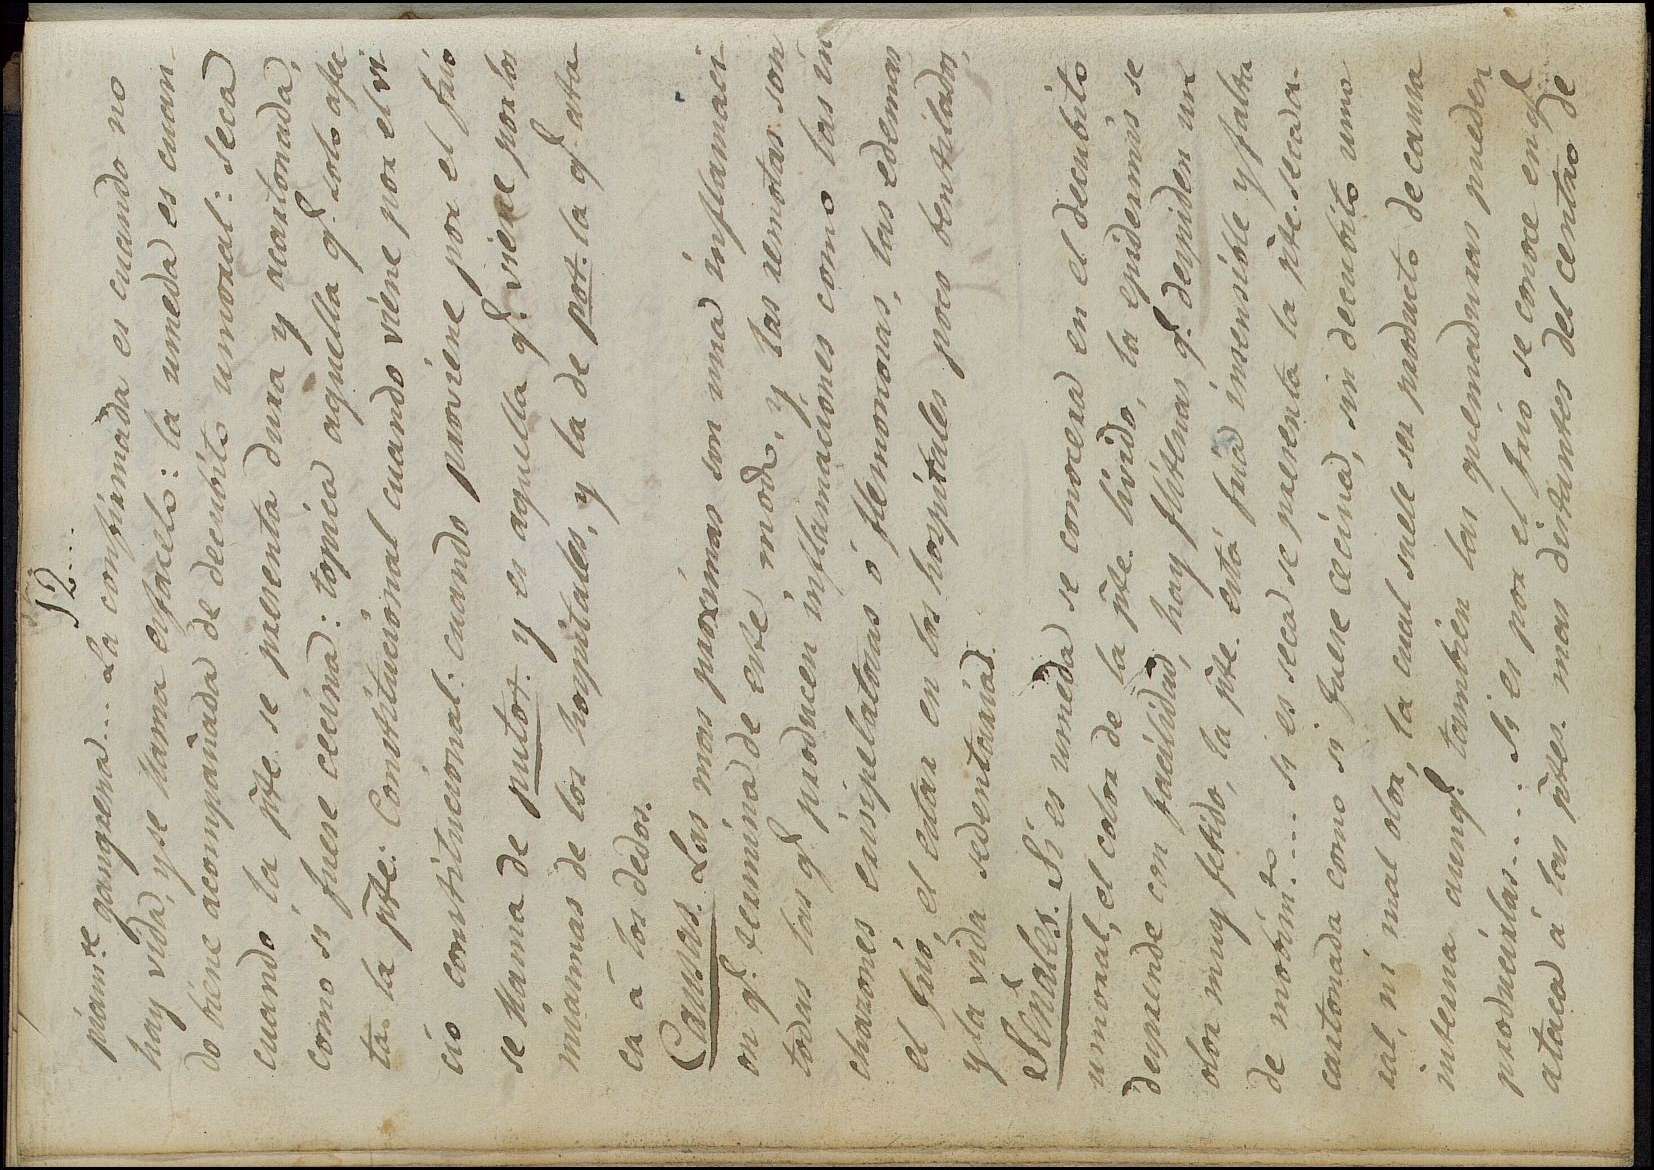 12....
piam.te gangrena.... La confirmada es cuando no
hay vida, y se llama esfacelo: la umeda es cuan
do biene acompañada de decubito umoral: seca
cuando la pte. se presenta dura y acartonada,
como si fuese cecina: topica aquella q.e solo afec
ta la pte: Constitucional cuando viene por el vi
cio constitucional: cuando proviene por el frio
se llama de putot. y es aquella q.e viene por los
miasmas de los hospitales, y la de pot. la q.e ata
ca á los dedos.
Causas. Las mas procsimas son una inflamaci
on q.e termina de este modo, y las remotas son
todas las q.e producen inflamaciones como las in
chazones erisipelatosas ó flemonosas, las edemas
el frio, el estar en los hospitales poco bentilados,
y la vida sedentaria.
Señales. Si es umeda se conocera en el decubito
umoral, el color de la pte. livido, la epidermis se
desprende con facilidad, hay flictenas q.e despiden un
olor muy fetido, la pte. está fria insensible y falta
de mobim.to.... si es seca se presenta la pte. seca a
cartonada como si fuese cecina, sin decubito umo
ral, ni mal olor, la cual suele ser producto de causa
interna aunq.e tambien las quemaduras pueden
producirlas.... Si es por el frio se conoce en q.e
ataca á las ptes. mas distantes del centro de